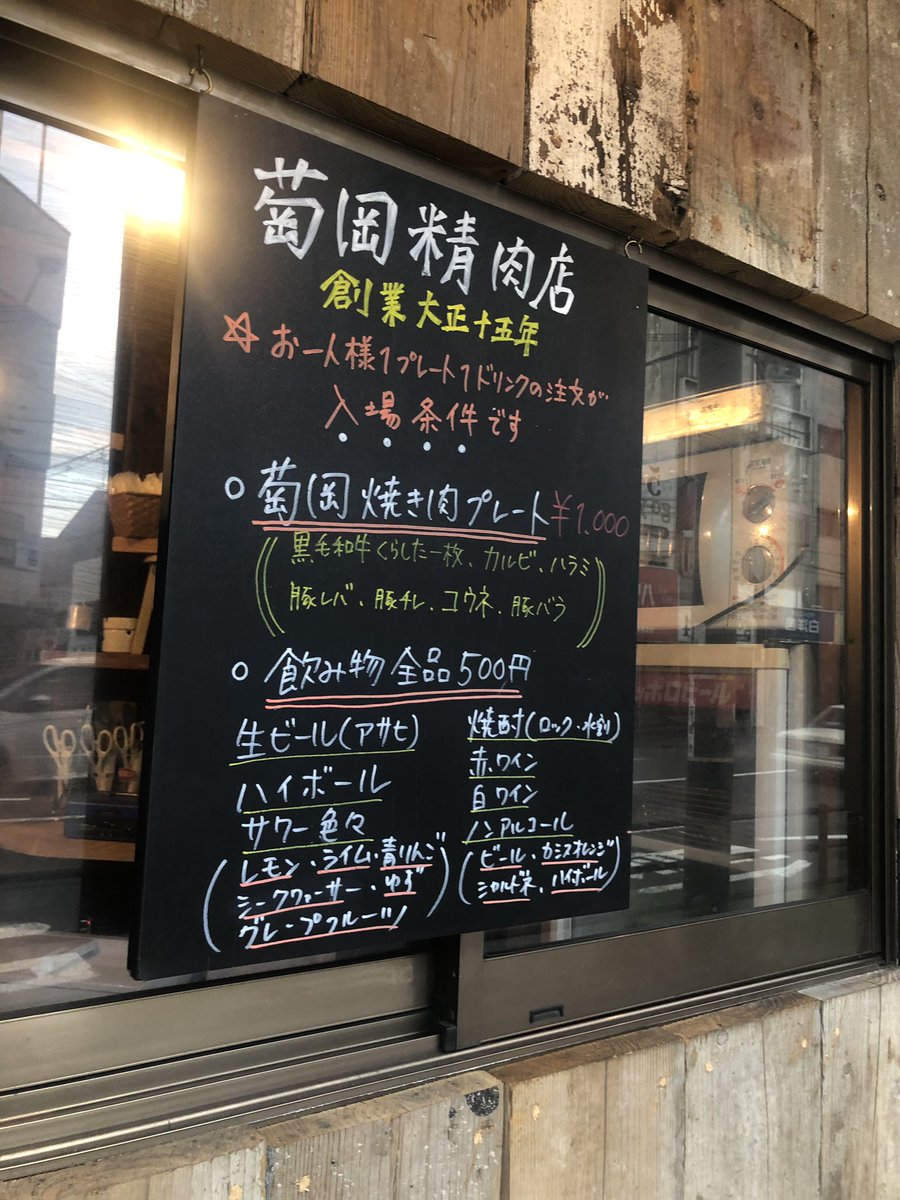 菊岡精肉店
創業大正十五年
☆お一人様1プレート1ドリンクの注文が
入場条件です
○菊岡焼き肉プレート¥1.000
(黒毛和牛くらした一枚、カルビ、ハラミ
豚レバ、豚チレ、コウネ、豚バラ)
○飲み物全品500円
生ビール(アサヒ)
ハイボール
サワー色々
(レモン・ライム・青りんご
シークヮーサー・ゆず
グレープフルーツ)
焼酎(ロック・水割)
赤ワイン
白ワイン
ノンアルコール
(ビール・カシスオレンジ
シャルドネ、ハイボール)